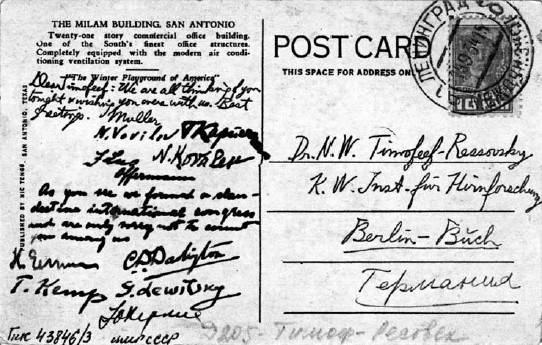 THE MILAM BUILDING, SAN ANTONIO
Twenty-one story commercial office building.
One of the South's finest office structures.
Completely equipped with the modern air condi-
tioning ventilation system.
"The Winter Playground of America"
Dear Timofeef:- We are all thinking of you
tonight & wishing you were with us. Best
Muller
N. Vavilov
Offermann
As you see we formed a clan-
destine international congress
and are only sorry not to count
you among us
C.D. Darlington
T. Kemp
ПИК 43846/3
СССР
PUBLISHED BY NIC TENGG, SAN ANTONIO, TEXAS
POST CARD
THIS SPACE FOR ADDRESS ONLY
ЛЕНИНГРАД
Dr. N. W. Timofeef-Ressovsky
K. W. Inst. für Hirnforschung
Berlin-Buch
Германия
Э205-Тимоф-Ресовск